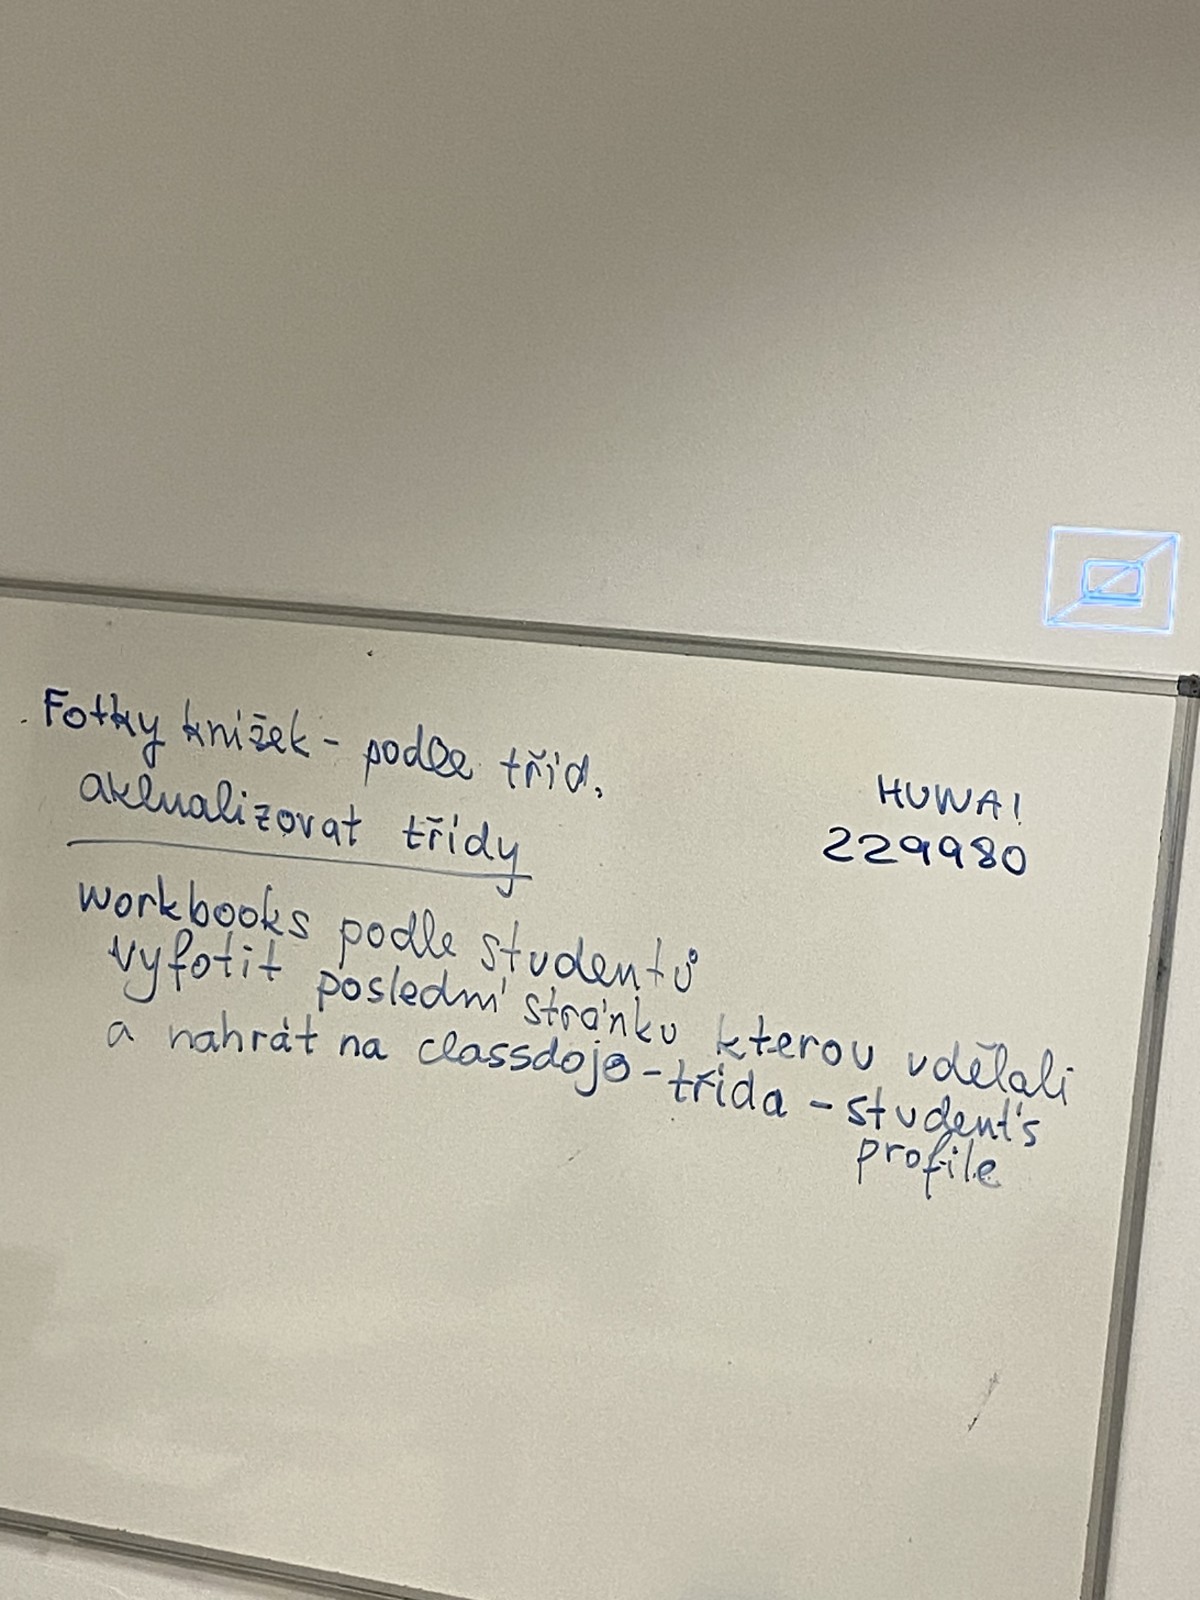 Fotky knížek - podle tříd,
aktualizovat třídy
HUWA!
229980
workbooks podle studentů
vyfotit poslední stránku kterou vdělali
a nahrát na classdojo - třída - student's
profile